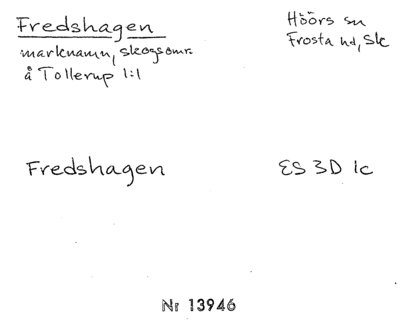 Fredshagen
marknamn, skogsomr.
å Tollerup 1:1
Höörs sn
Frosta hd, Sk
Fredshagen
ES 3D 1c
Nr 13946